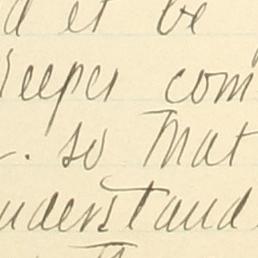 d et be
deeper com
. so that
nderstand